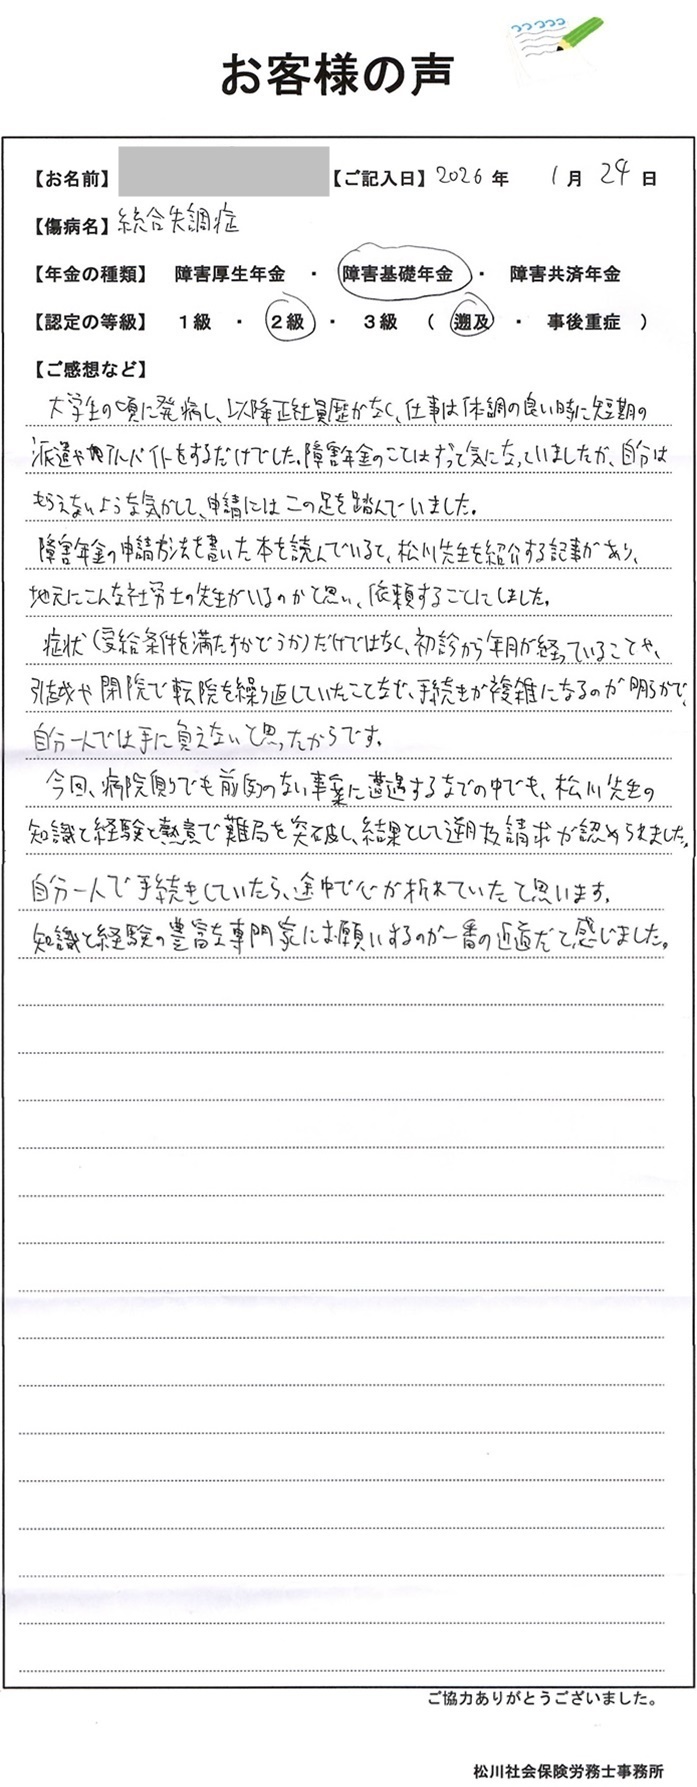 お客様の声
【お名前】 【ご記入日】2026年 1月 24日
【傷病名】統合失調症
【年金の種類】 障害厚生年金 ・ 障害基礎年金 ・ 障害共済年金
【認定の等級】 1級 ・ 2級 ・ 3級 ( 遡及 ・ 事後重症 )
【ご感想など】
大学生の頃に発病し、以降正社員歴がなく、仕事は体調の良い時に短期の
派遣やアルバイトをするだけでした。障害年金のことはずっと気になっていましたが、自分は
もらえないような気がして、申請には二の足を踏んでいました。
障害年金の申請方法を書いた本を読んでいると、松川先生を紹介する記事があり、
地元にこんな社労士の先生がいるのかと思い、依頼することにしました。
症状(受給条件を満たすかどうか)だけではなく、初診から年月が経っていることや、
引越や閉院で転院を繰り返していたことなど、手続きが複雑になるのが明らかで、
自分一人では手に負えないと思ったからです。
今回、病院側でも前例のない事案に遭遇するなどの中でも、松川先生の
知識と経験と熱意で難局を突破し、結果として遡及請求が認められました。
自分一人で手続きをしていたら、途中で心が折れていたと思います。
知識と経験の豊富な専門家にお願いするのが一番の近道だと感じました。
ご協力ありがとうございました。
松川社会保険労務士事務所